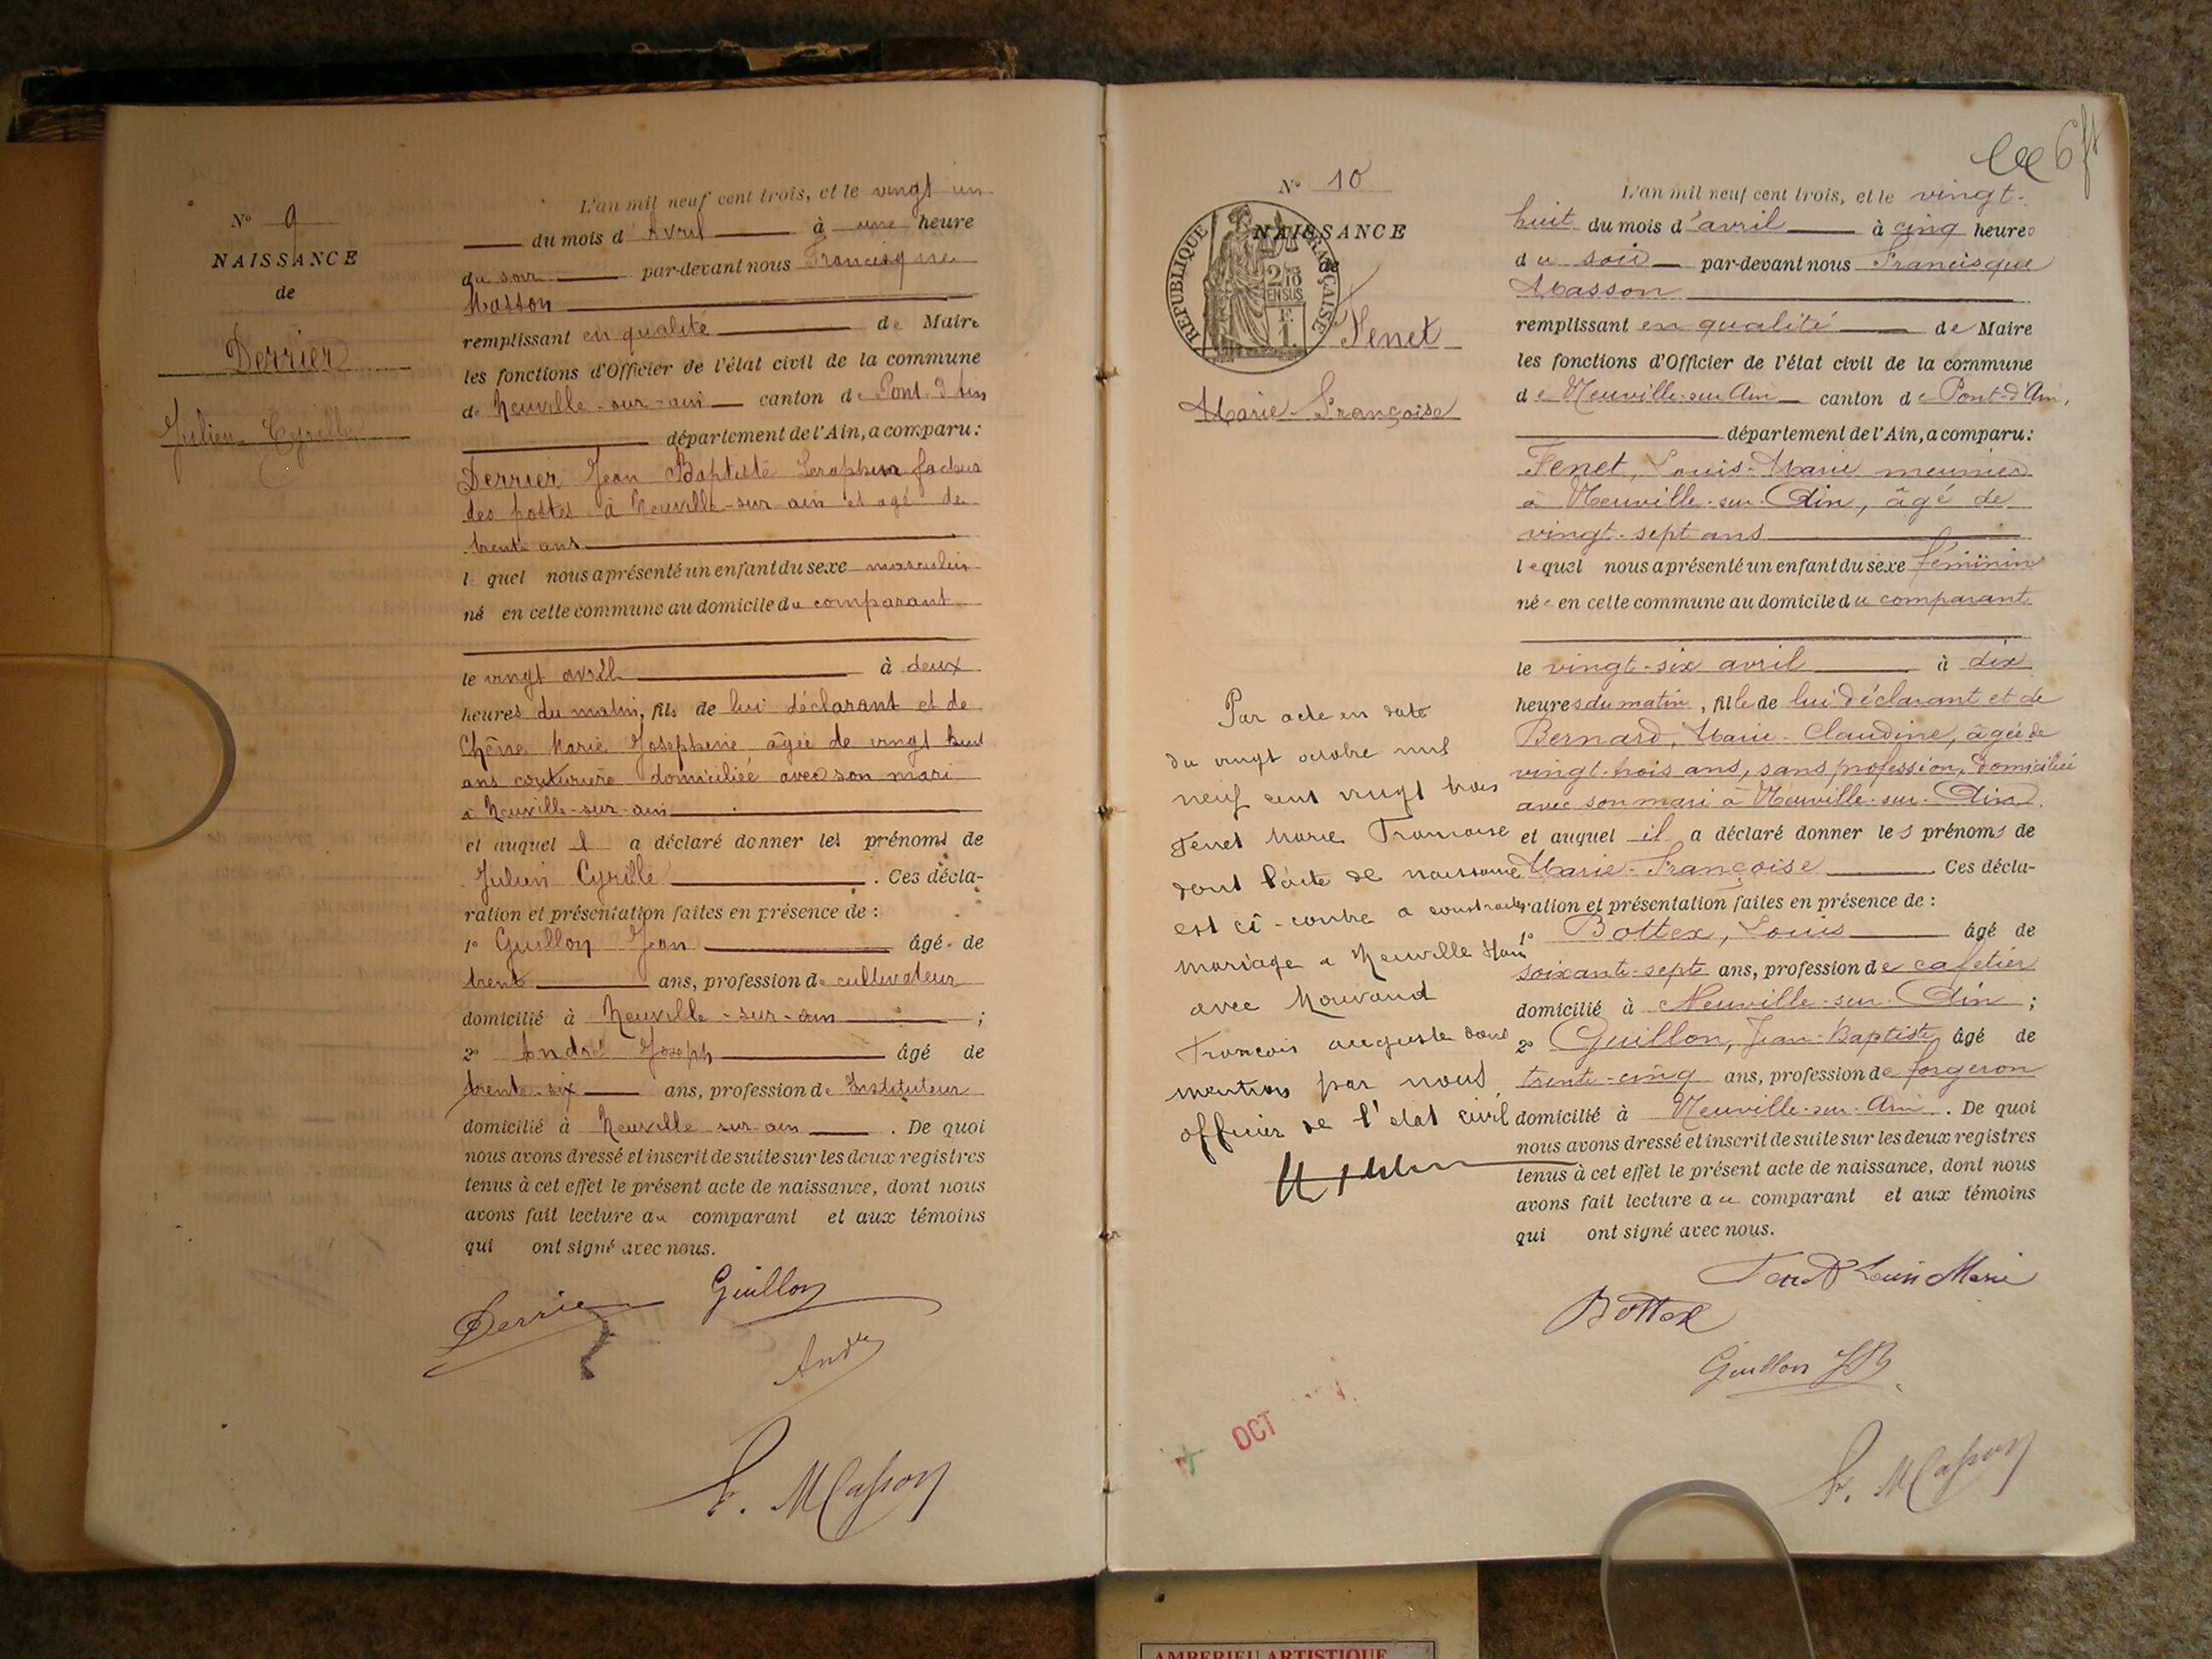 N° 9
NAISSANCE
de
Derrier
Julien Cyrille
L'an mil neuf cent trois, et le vingt un
du mois d'Avril à une heure
du soir par-devant nous Francisque
Masson
remplissant en qualité de Maire
les fonctions d'Officier de l'état civil de la commune
de Neuville-sur-ain canton de Pont-d'Ain
département de l'Ain, a comparu:
Derrier Jean Baptiste Seraphin facteur
des postes à Neuville-sur-ain et agé de
trente ans
l quel nous a présenté un enfant du sexe masculin
né en cette commune au domicile du comparant
le vingt avril à deux
heures du matin, fils de lui déclarant et de
Chêne Marie Josephine âgée de vingt huit
ans couturière domiciliée avec son mari
à Neuville-sur-ain
et auquel il a déclaré donner les prénoms de
Julien Cyrille . Ces décla-
ration et présentation faites en présence de :
1° Guillon Jean âgé de
trente ans, profession de cultivateur
domicilié à Neuville-sur-ain ;
2° André Joseph âgé de
trente-six ans, profession de Instituteur
domicilié à Neuville sur-ain . De quoi
nous avons dressé et inscrit de suite sur les deux registres
tenus à cet effet le présent acte de naissance, dont nous
avons fait lecture au comparant et aux témoins
qui ont signé avec nous.
Derrier Guillon
André
F. Masson
6
N° 10
NAISSANCE
de
RÉPUBLIQUE FRANÇAISE
EN SUS
Tenet
Marie-Françoise
L'an mil neuf cent trois, et le vingt-
huit du mois d'avril à cinq heures
du soir par-devant nous Francisque
Masson
remplissant en qualité de Maire
les fonctions d'Officier de l'état civil de la commune
de Neuville-sur-Ain canton de Pont-d'Ain,
département de l'Ain, a comparu:
Tenet, Louis-Marie meunier
à Neuville-sur-Ain, âgé de
vingt-sept ans
lequel nous a présenté un enfant du sexe féminin
née en cette commune au domicile du comparant
le vingt-six avril à dix
heures du matin, fille de lui déclarant et de
Bernard, Marie-Claudine, âgée de
vingt-trois ans, sans profession, domiciliée
avec son mari à Neuville-sur-Ain.
et auquel il a déclaré donner les prénoms de
Marie-Françoise Ces décla-
ration et présentation faites en présence de :
1° Bottex, Louis âgé de
soixante-septe ans, profession de cafetier
domicilié à Neuville-sur-Ain ;
2° Guillon, Jean-Baptiste âgé de
trente-cinq ans, profession de forgeron
domicilié à Neuville-sur-Ain . De quoi
nous avons dressé et inscrit de suite sur les deux registres
tenus à cet effet le présent acte de naissance, dont nous
avons fait lecture au comparant et aux témoins
qui ont signé avec nous.
Par acte en date
du vingt octobre mil
neuf cent vingt trois
Tenet Marie Francoise
dont l'acte de naissance
est ci-contre a contracté
mariage a Neuville s/ain
avec Mouvand
Francois auguste dont
mention par nous
officier de l'etat civil
Tenet Louis Marie
Bottex
Guillon JB
F. Masson
OCT
AMBERIEU ARTISTIQUE